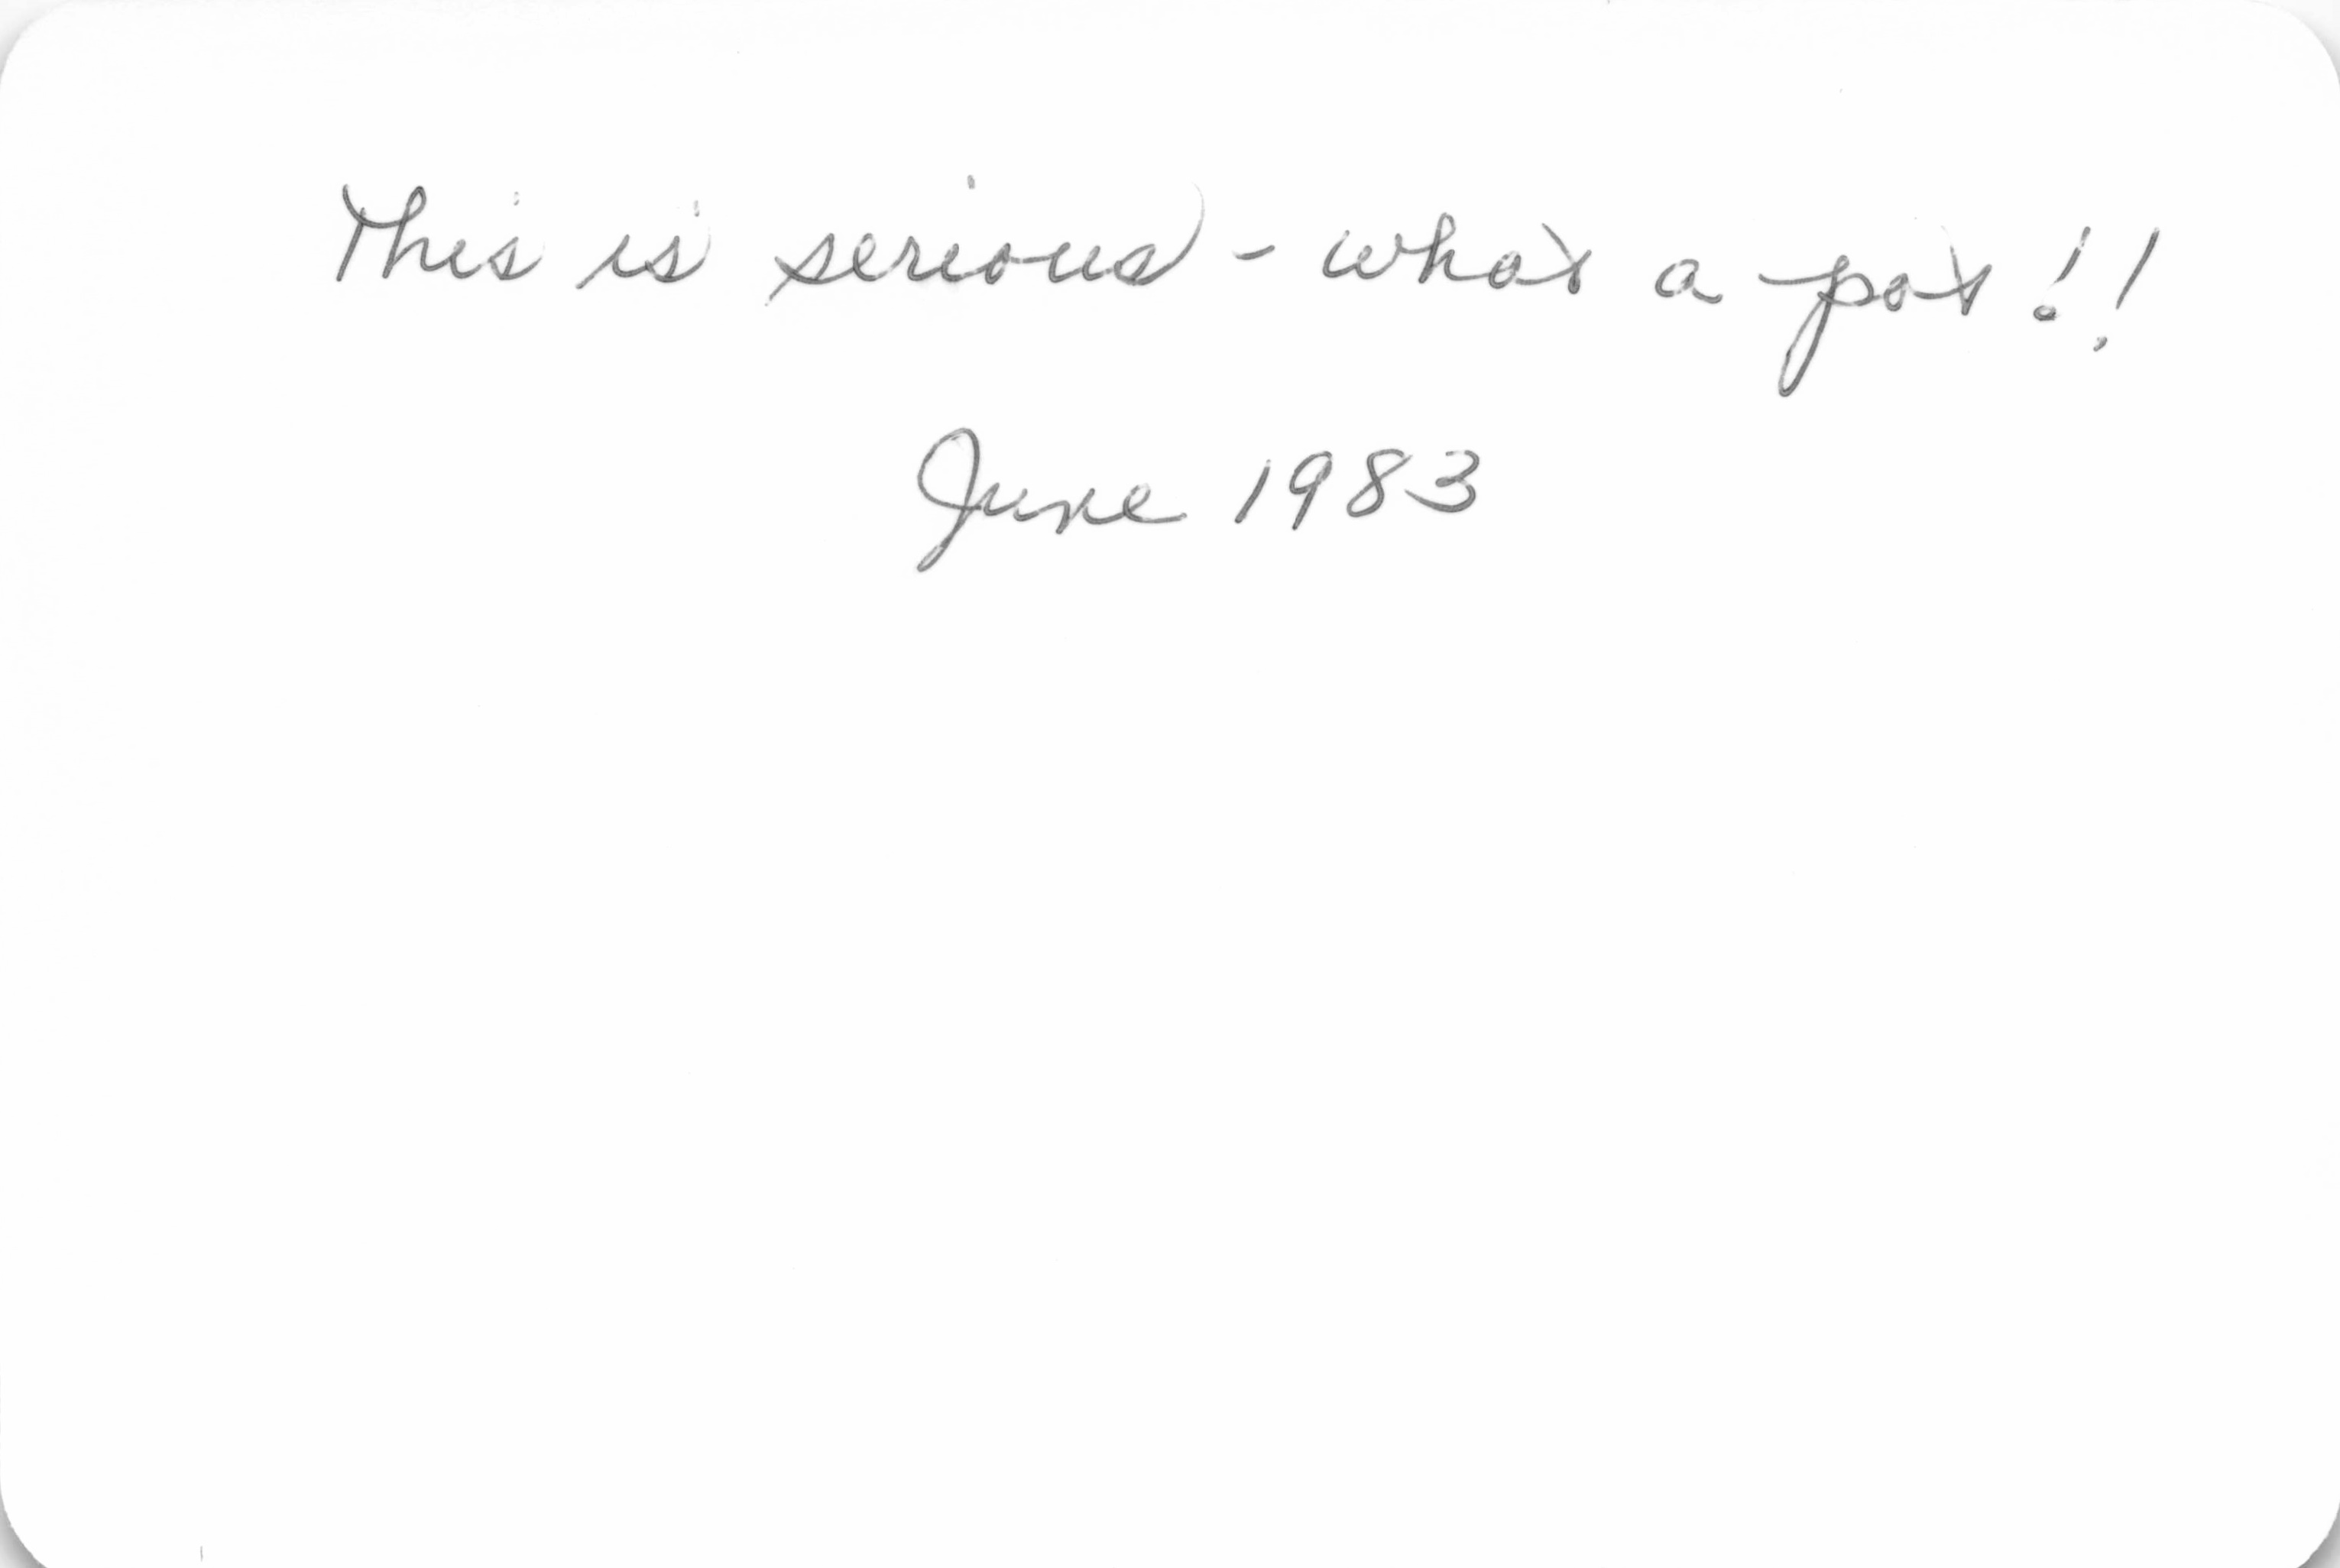 This is serious - what a pot!!
June 1983